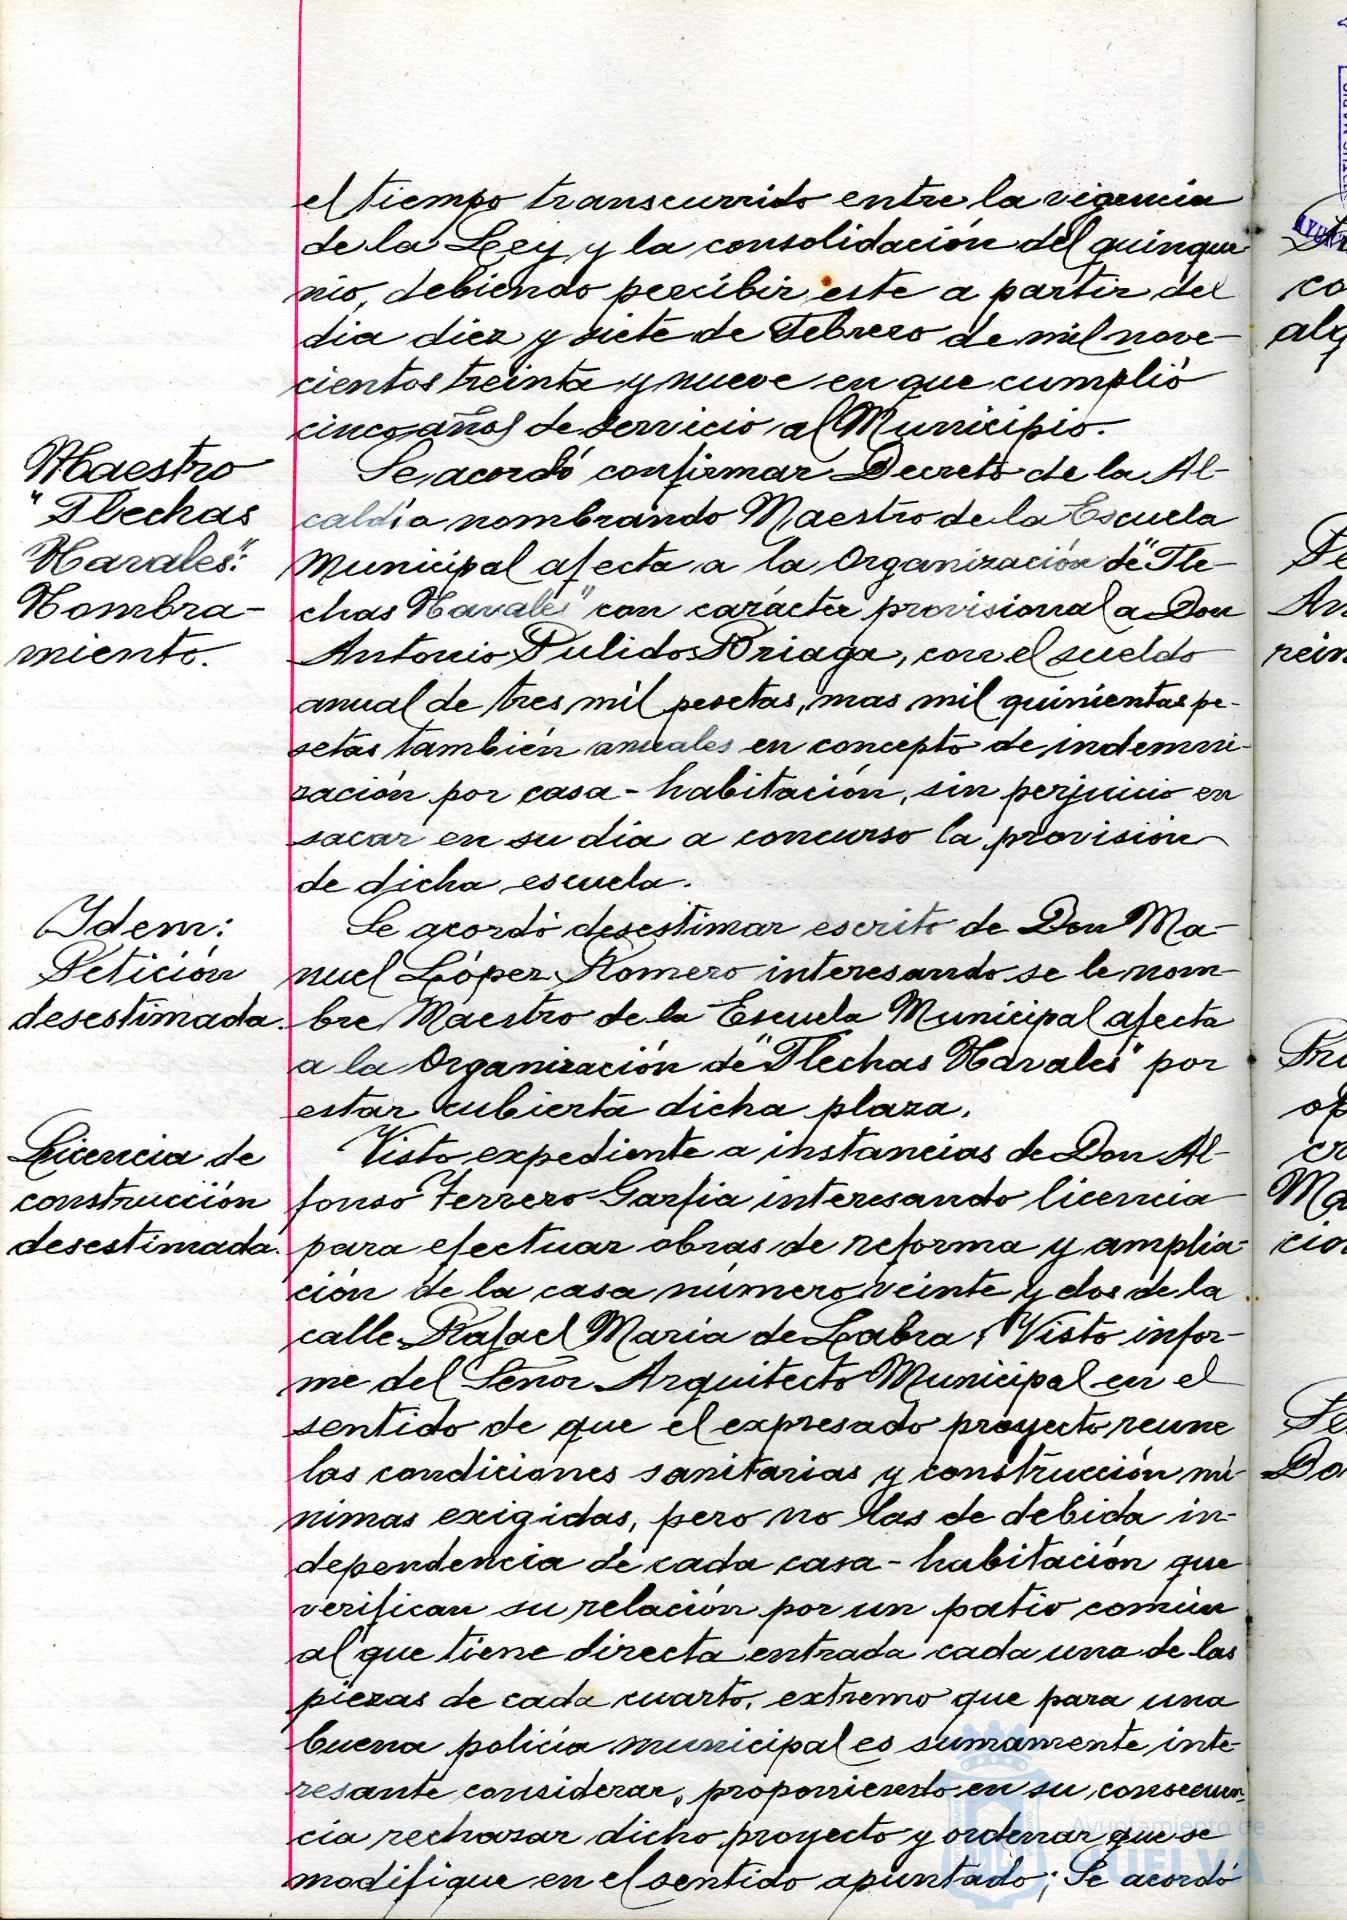 el tiempo transcurrido entre la vigencia
de la Ley y la consolidación del quinque
nio, debiendo percibir este a partir del
dia diez y siete de Febrero de mil nove-
cientos treinta y nueve en que cumplió
cinco años de servicio al Municipio.
Maestro
"Flechas
Navales".
Nombra-
miento.
Se acordó confirmar Decreto de la Al-
caldía nombrando Maestro de la Escuela
Municipal afecta a la Organización de "Fle-
chas Navales" con carácter provisional a Don
Antonio Pulido Briaga, con el sueldo
anual de tres mil pesetas, mas mil quinientas pe-
setas también anuales en concepto de indemni-
zación por casa-habitación, sin perjuicio en
sacar en su dia a concurso la provisión
de dicha escuela.
Idem:
Petición
desestimada.
Se acordó desestimar escrito de Don Ma-
nuel López Romero interesando se le nom-
bre Maestro de la Escuela Municipal afecta
a la Organización de "Flechas Navales" por
estar cubierta dicha plaza.
Licencia de
construcción
desestimada.
Visto expediente a instancias de Don Al-
fonso Ferrero Garfia interesando licencia
para efectuar obras de reforma y amplia-
ción de la casa número veinte y dos de la
calle Rafael Maria de Labra; Visto infor-
me del Señor Arquitecto Municipal en el
sentido de que el expresado proyecto reune
las condiciones sanitarias y construcción mí-
nimas exigidas, pero no las de debida in-
dependencia de cada casa-habitación que
verifican su relación por un patio común
al que tiene directa entrada cada una de las
piezas de cada cuarto, extremo que para una
buena policía municipal es sumamente inte-
resante considerar, proponiendo en su consecuen-
cia rechazar dicho proyecto y ordenar que se
modifique en el sentido apuntado; Se acordó
Ayuntamiento de
HUELVA